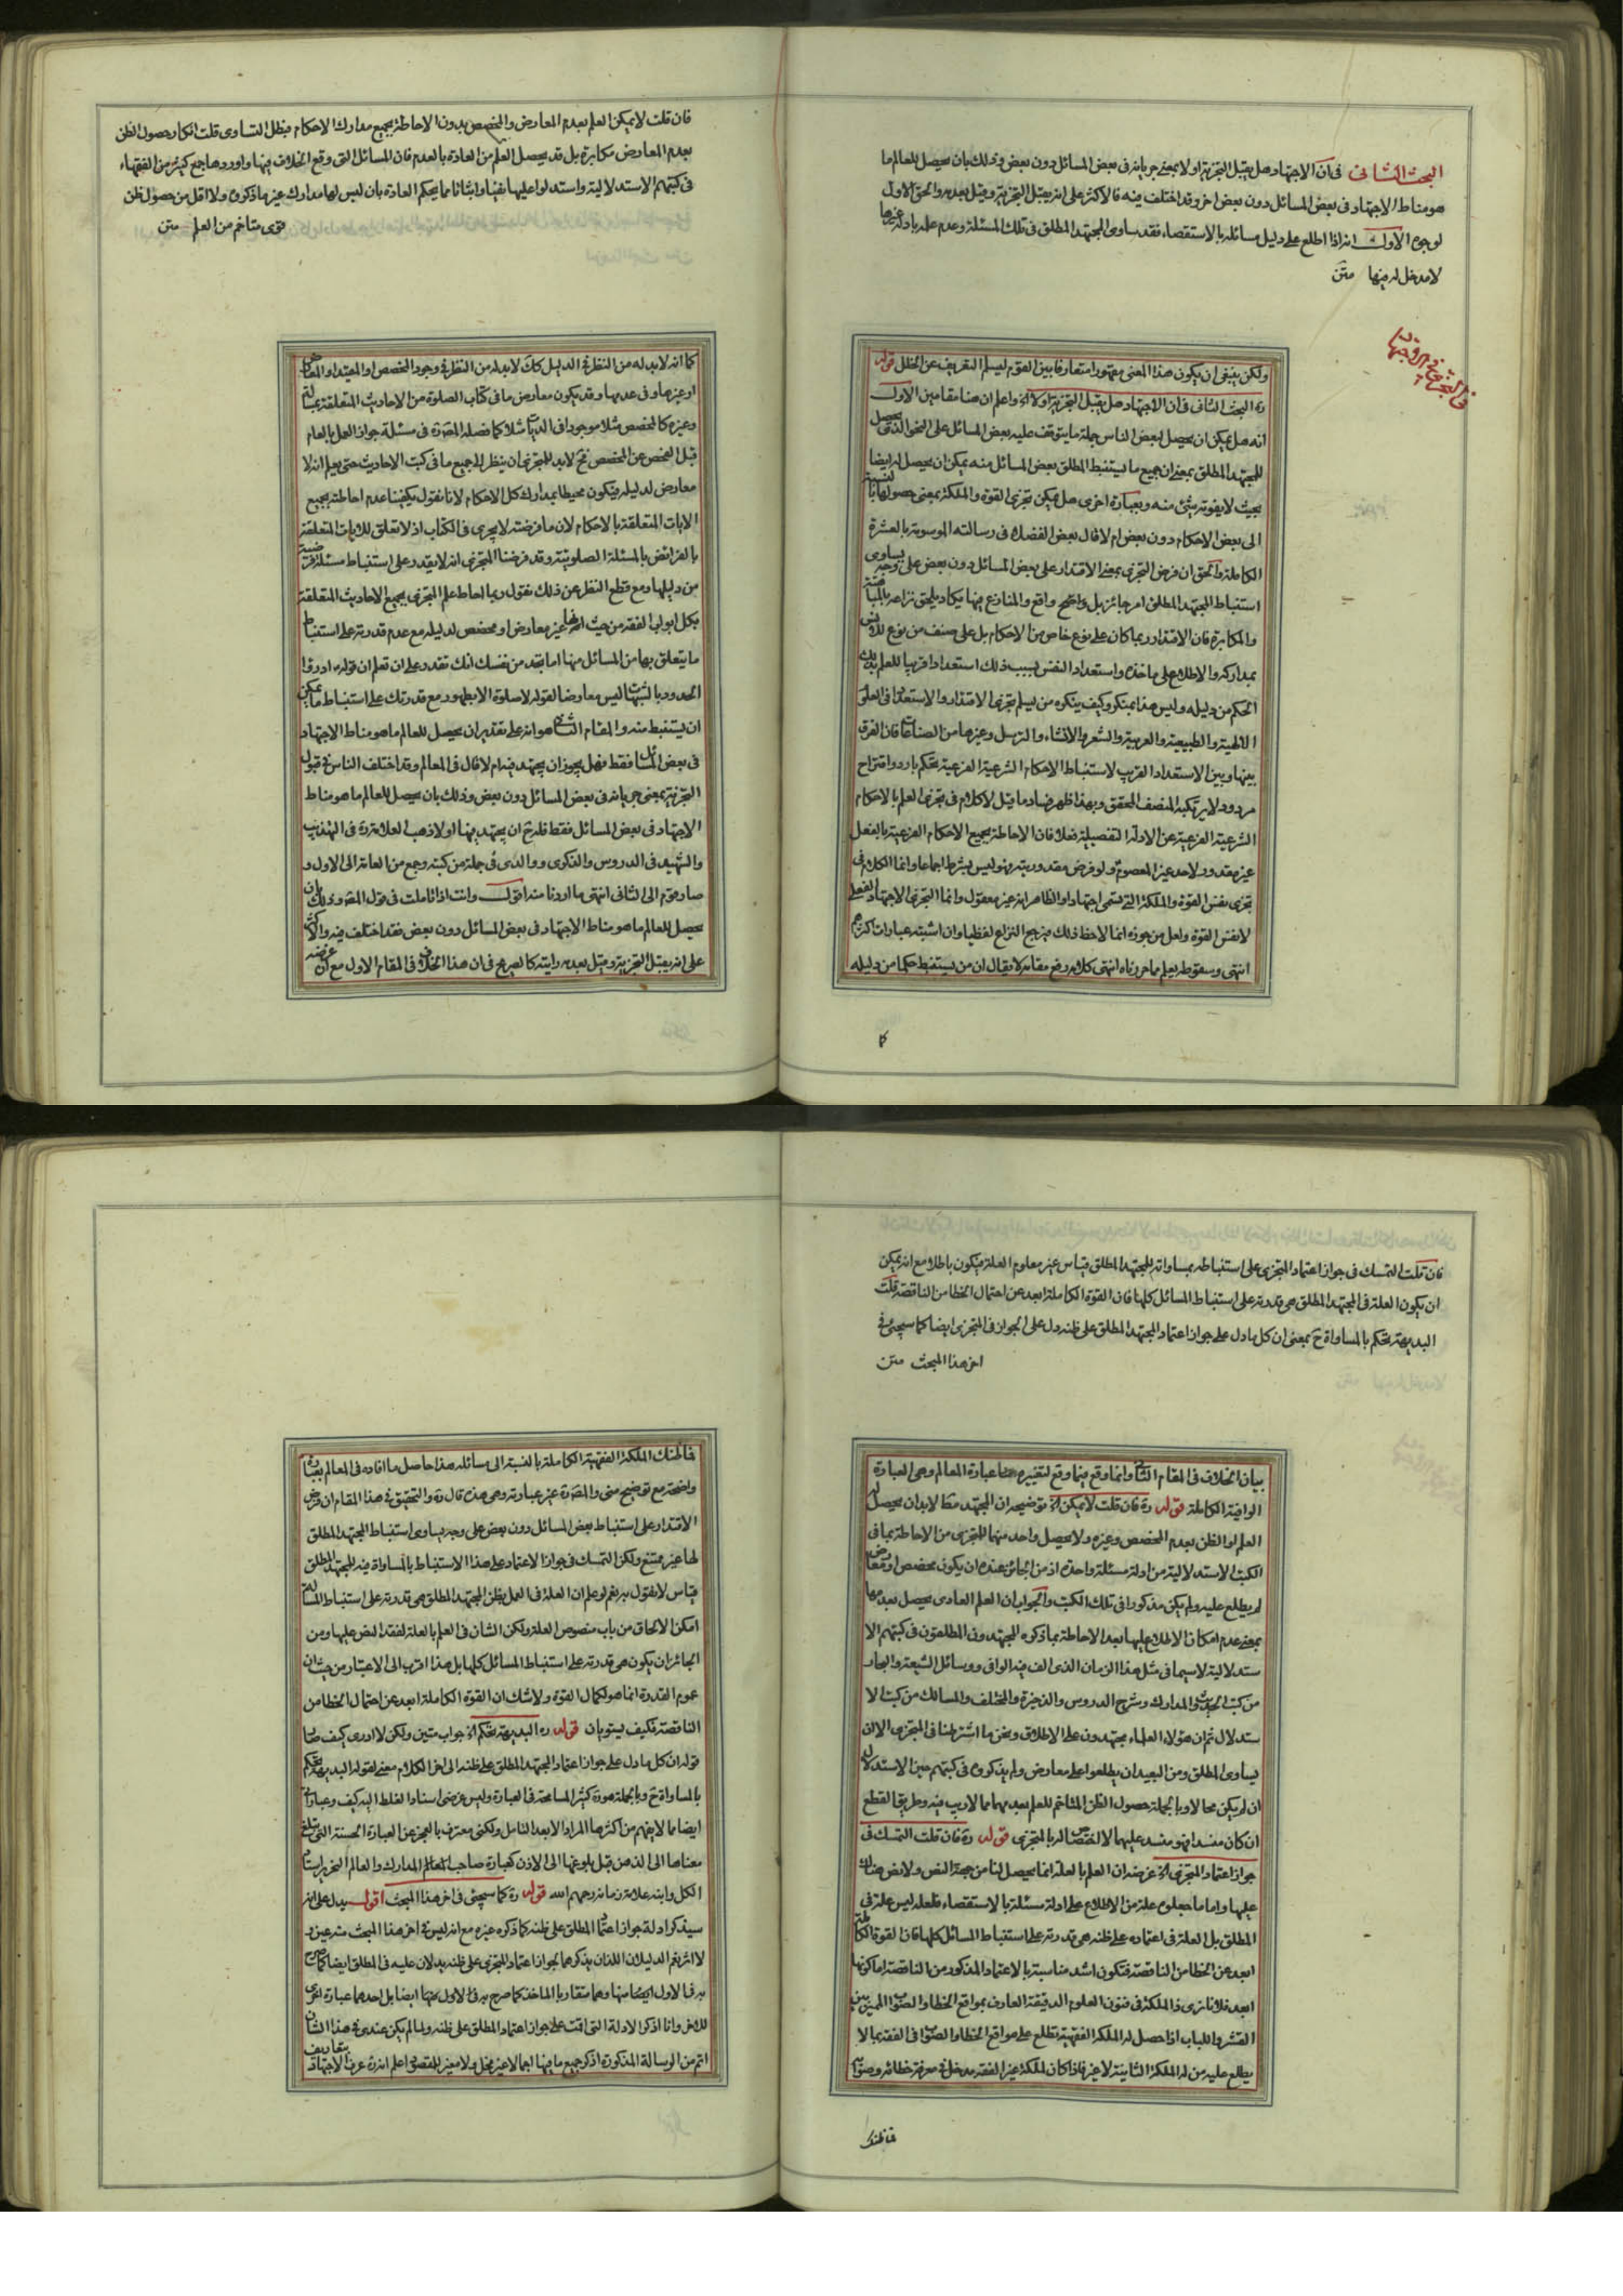 البحث الثانى فى ان الاجتهاد هل يقبل التجزية او لا بمعنى جريانه فى بعض المسائل دون بعض وذلك بان يحصل للعالم ما
هو مناط الاجتهاد فى بعض المسائل دون بعض اخر وقد اختلف فيه فالاكثر على انه يقبل التجزية وقيل بعدمه والحق الاول
لوجوه الاول انه اذا اطلع على دليل مسئلة بالاستقصاء فقد ساوى المجتهد المطلق فى تلك المسئلة وعدم علمه بادلة غيرها
لا مدخل له فيها متن
فى التجزية فى الاجتهاد
ولكن ينبغى ان يكون هذا المعنى معهودا متعارفا بين القوم ليسلم التعريف عن الخلل قوله
ره البحث الثانى فى ان الاجتهاد هل يقبل التجزية او لا اه واعلم ان هنا مقامين الاول
انه هل يمكن ان يحصل لبعض الناس جملة ما يتوقف عليه بعض المسائل على النحو الذى يحصل
للمجتهد المطلق بمعنى ان جميع ما يستنبط المطلق بعض المسائل منه يمكن ان يحصل له ايضا
بحيث لا يفوته شئ منه وبعبارة اخرى هل يمكن تجزى القوة والملكة بمعنى حصولها بالنسبة
الى بعض الاحكام دون بعض ام لا قال بعض الفضلاء فى رسالته الموسومة بالعشرة
الكاملة والحق ان فرض التجزى بمعنى الاقتدار على بعض المسائل دون بعض على وجه يساوى
استنباط المجتهد المطلق امر جائز بل واضح واقع والمنازع فيها يكاد يلحق نزاعه بالمباهتة
والمكابرة فان الاقتدار ربما كان على نوع خاص من الاحكام بل على صنف من نوع للانس
بمداركه والاطلاع على ماخذه واستعداد النفس بسبب ذلك استعدادا قريبا للعلم بذلك
الحكم من دليله وليس هذا بمنكر وكيف ينكره من يسلم تجزى الاقتدار والاستعداد فى العلوم
الالهية والطبيعية والعربية والشعر والانشاء والترسل وغيرها من الصناعات فان الفرق
بينها وبين الاستعداد القريب لاستنباط الاحكام الشرعية الفرعية تحكم بارد واقتراح
مردود لا يرتكبه المنصف المحقق وبهذا ظهر فساد ما قيل لا كلام فى تجزى العلم بالاحكام
الشرعية الفرعية عن الادلة التفصيلية فعلا فان الاحاطة بجميع الاحكام الفرعية بالفعل
غير مقدور لاحد غير المعصوم ولو فرض مقدوريته فهو ليس بشرط اجماعا وانما الكلام فى
تجزى نفس القوة والملكة التى تسمى اجتهادا والظاهر انه غير معقول وانما التجزى الاجتهاد الفعلى
لا نفس القوة ولعل من جوزه انما لاحظ ذلك فيرجع النزاع لفظيا وان اشبته عبارات اكثرهم
انتهى وسقوطه يعلم مما حررناه انتهى كلامه رفع مقامه لا يقال ان من يستنبط حكما من دليله
كما
فان قلت لا يمكن العلم بعدم المعارض والمخصص بدون الاحاطة بجميع مدارك الاحكام فبطل التساوى قلت انكار حصول الظن
بعدم المعارض مكابرة بل قد يحصل العلم من العادة بالعدم فان المسائل التى وقع الخلاف فيها واوردها جمع كثير من الفقهاء
فى كتبهم الاستدلالية واستدلوا عليها نفيا واثباتا مما يحكم العادة بان ليس لها مدارك غير ما ذكروه ولا اقل من حصول ظن
قوى متاخم من العلم متن
كما انه لا بد له من النظر فى الدليل كك لا بد له من النظر فى وجود المخصص او المقيد او المعارض
او غيرها وفى عدمها وقد يكون معارض ما فى كتاب الصلوة من الاحاديث المتعلقة بمسئلة
وغيره كالمخصص مثلا موجودا فى الديات مثلا كما فصله المص ره فى مسئلة جواز العمل بالعام
قبل الفحص عن المخصص فح لا بد للمتجزى ان ينظر الى جميع ما فى كتب الاحاديث حتى يعلم انه لا
معارض لدليله فيكون محيطا بمدارك كل الاحكام لانا نقول يكفينا عدم احاطته بجميع
الايات المتعلقة بالاحكام لان ما فرضته لا يجرى فى الكتاب اذ لا تعلق للايات المتعلقة
بالفرائض بالمسئلة الصلوتية وقد فرضنا المتجزى انه لا يقدر على استنباط مسئلة فرضية
من دليلها ومع قطع النظر عن ذلك نقول ربما احاط علم المتجزى بجميع الاحاديث المتعلقة
بكل ابواب الفقه من حيث انها غير معارض او مخصص لدليله مع عدم قدرته على استنباط
ما يتعلق بها من المسائل منها اما تجد من نفسك انك تقدر على ان تعلم ان قوله ع ادرؤا
الحدود بالشبهات ليس معارضا لقوله لا صلوة الا بطهور مع قدرتك على استنباط ما يمكن
ان يستنبط منه والمقام الثانى هو انه على تقدير ان يحصل للعالم ما هو مناط الاجتهاد
فى بعض المسائل فقط فهل يجوز ان يجتهد فيه ام لا قال فى المعالم وقد اختلف الناس فى قبول
التجزية بمعنى جريانه فى بعض المسائل دون بعض وذلك بان يحصل للعالم ما هو مناط
الاجتهاد فى بعض المسائل فقط فله ح ان يجتهد فيها او لا ذهب العلامة ره فى التهذيب
والشهيد فى الدروس والذكرى ووالدى فى جملة من كتبه وجمع من العامة الى الاول و
صار قوم الى الثانى انتهى ما اردنا منه اقول وانت اذا تاملت فى قول المص ره وذلك بان
يحصل للعالم ما هو مناط الاجتهاد فى بعض المسائل دون بعض فقد اختلف فيه والاكثر
على انه يقبل التجزية وقيل بعدمه رايته كالصريح فى ان هذا الخلاف فى المقام الاول مع ان غرضه
فان قلت التمسك فى جواز اعتماد المتجزى على استنباطه بمساواته للمجتهد المطلق قياس غير معلوم العلة فيكون باطلا مع انه يمكن
ان يكون العلة فى المجتهد المطلق هى قدرته على استنباط المسائل كلها فان القوة الكاملة ابعد عن احتمال الخطا من الناقصة قلت
البديهة تحكم بالمساواة ح بمعنى ان كل ما دل على جواز اعتماد المجتهد المطلق على ظنه دل على الجواز فى المتجزى ايضا كما سيجئ فى
اخر هذا المبحث متن
بيان الخلاف فى المقام الثانى وانما وقع فيما وقع لتغييره عبارة المعالم وهى العبارة
الوافية الكاملة قوله ره فان قلت لا يمكن اه توضيحه ان المجتهد مط لا بد ان يحصل له
العلم او الظن بعدم المخصص وغيره ولا يحصل واحد منها للمتجزى من الاحاطة بما فى
الكتب الاستدلالية من ادلة مسئلة واحدة اذ من الجائز عنده ان يكون مخصص او معارض
لم يطلع عليه ولم يكن مذكورا فى تلك الكتب والجواب ان العلم العادى يحصل بعدمها
بمعنى عدم امكان الاطلاع عليها بعد الاحاطة بما ذكره المجتهدون المطلعون فى كتبهم الا
ستدلالية لا سيما فى مثل هذا الزمان الذى الف فيه الوافى ووسائل الشيعة والبحار
من كتب الحديث والمدارك وشرح الدروس والذخيرة والمختلف والمسالك من كتب الا
ستدلال ثم ان هؤلاء العلماء مجتهدون على الاطلاق ونحن ما اشترطنا فى المتجزى الا ان
يساوى المطلق ومن البعيد ان يطلعوا على معارض ولم يذكروه فى كتبهم حين الاستدلال
ان لم يكن محالا وبالجملة حصول الظن المتاخم للعلم بعدمها مما لا ريب فيه وطريق القطع
ان كان منسدا فهو منسد عليهما لا اختصاص له بالمتجزى قوله ره فان قلت التمسك فى
جواز اعتماد المتجزى اه غرضه ان العلم بالعلة انما يحصل لنا من جهة النص ولا نص هناك
عليها واما ما جعلوه علة من الاطلاع على ادلة مسئلة بالاستقصاء فلعله ليس علة فى
المطلق بل العلة فى اعتماده على ظنه هى قدرته على استنباط المسائل كلها فان القوة الكاملة
ابعد عن الخطا من الناقصة فتكون اشد مناسبة بالاعتماد المذكور من الناقصة اما كونها
ابعد فلانا نرى ذا الملكة فى فنون العلوم الدقيقة العارف بمواقع الخطا والصواب المميز بين
القشر واللباب اذا حصل له الملكة الفقهية تطلع على مواقع الخطا والصواب فى الفقه بما لا
يطلع عليه من له الملكة الثانية لا غير فاذا كان لملكة غير الفقه مدخل فى معرفة خطائه وصوابه
فما ظنك
فما ظنك الملكة الفقهية الكاملة بالنسبة الى مسائله هذا حاصل ما افاده فى المعالم بعبارة
واضحة مع توضيح منى والمص ره غير عبارته وهى هذه قال ره والتحقيق فى هذا المقام ان فرض
الاقتدار على استنباط بعض المسائل دون بعض على وجه يساوى استنباط المجتهد المطلق
لها غير ممتنع ولكن التمسك فى جواز الاعتماد على هذا الاستنباط بالمساواة فيه للمجتهد المطلق
قياس لا نقول به نعم لو علم ان العلة فى العمل بظن المجتهد المطلق هى قدرته على استنباط المسئلة
امكن الالحاق من باب منصوص العلة ولكن الشان فى العلم بالعلة لفقد النص عليها ومن
الجائز ان يكون هى قدرته على استنباط المسائل كلها بل هذا اقرب الى الاعتبار من حيث ان
عموم القدرة انما هو لكمال القوة ولا شك ان القوة الكاملة ابعد عن احتمال الخطا من
الناقصة فكيف يستويان قوله ره البديهة تحكم اه جواب متين ولكن لا ادرى كيف صار
قوله ان كل ما دل على جواز اعتماد المجتهد المطلق على ظنه الى اخر الكلام معنى لقوله البديهة تحكم
بالمساواة ح وبالجملة هو ره كثير المسامحة فى العبارة وليس غرضى اسناد الغلط اليه كيف وعباراتى
ايضا مما لا يفهم من اكثرها المراد الا بعد التامل ولكنى معترف بالعجز عن العبارة الحسنة التى تبلغ
معناها الى الذهن قبل بلوغها الى الاذن كعبارة صاحب المدارك والعالم النحرير استاد
الكل وابنه علامة زمانه رحمهم الله قوله ره كما سيجئ فى اخر هذا المبحث اقول يدل على انه
سيذكر ادلة جواز اعتماد المطلق على ظنه كما ذكره غيره مع انه ليس فى اخر هذا المبحث منه عين و
لا اثر نعم الدليلان اللذان يذكرهما لجواز اعتماد المتجزى على ظنه يدلان عليه فى المطلق ايضا كما صرح
به فى الاول ايضا منها وهما متقاربا الماخذ كما صرح به فى الاول منها ايضا بل احدهما عبارة اخرى
للاخر وانا اذكر الادلة التى اقت على جواز اعتماد المطلق على ظنه ولما لم يكن عندى فى هذا الشان
اتم من الرسالة المذكورة اذكر جميع ما فيها اجمالا غير مخل ولا مغير للمقصود اعلم انه ره عرف الاجتهاد بتعاريف